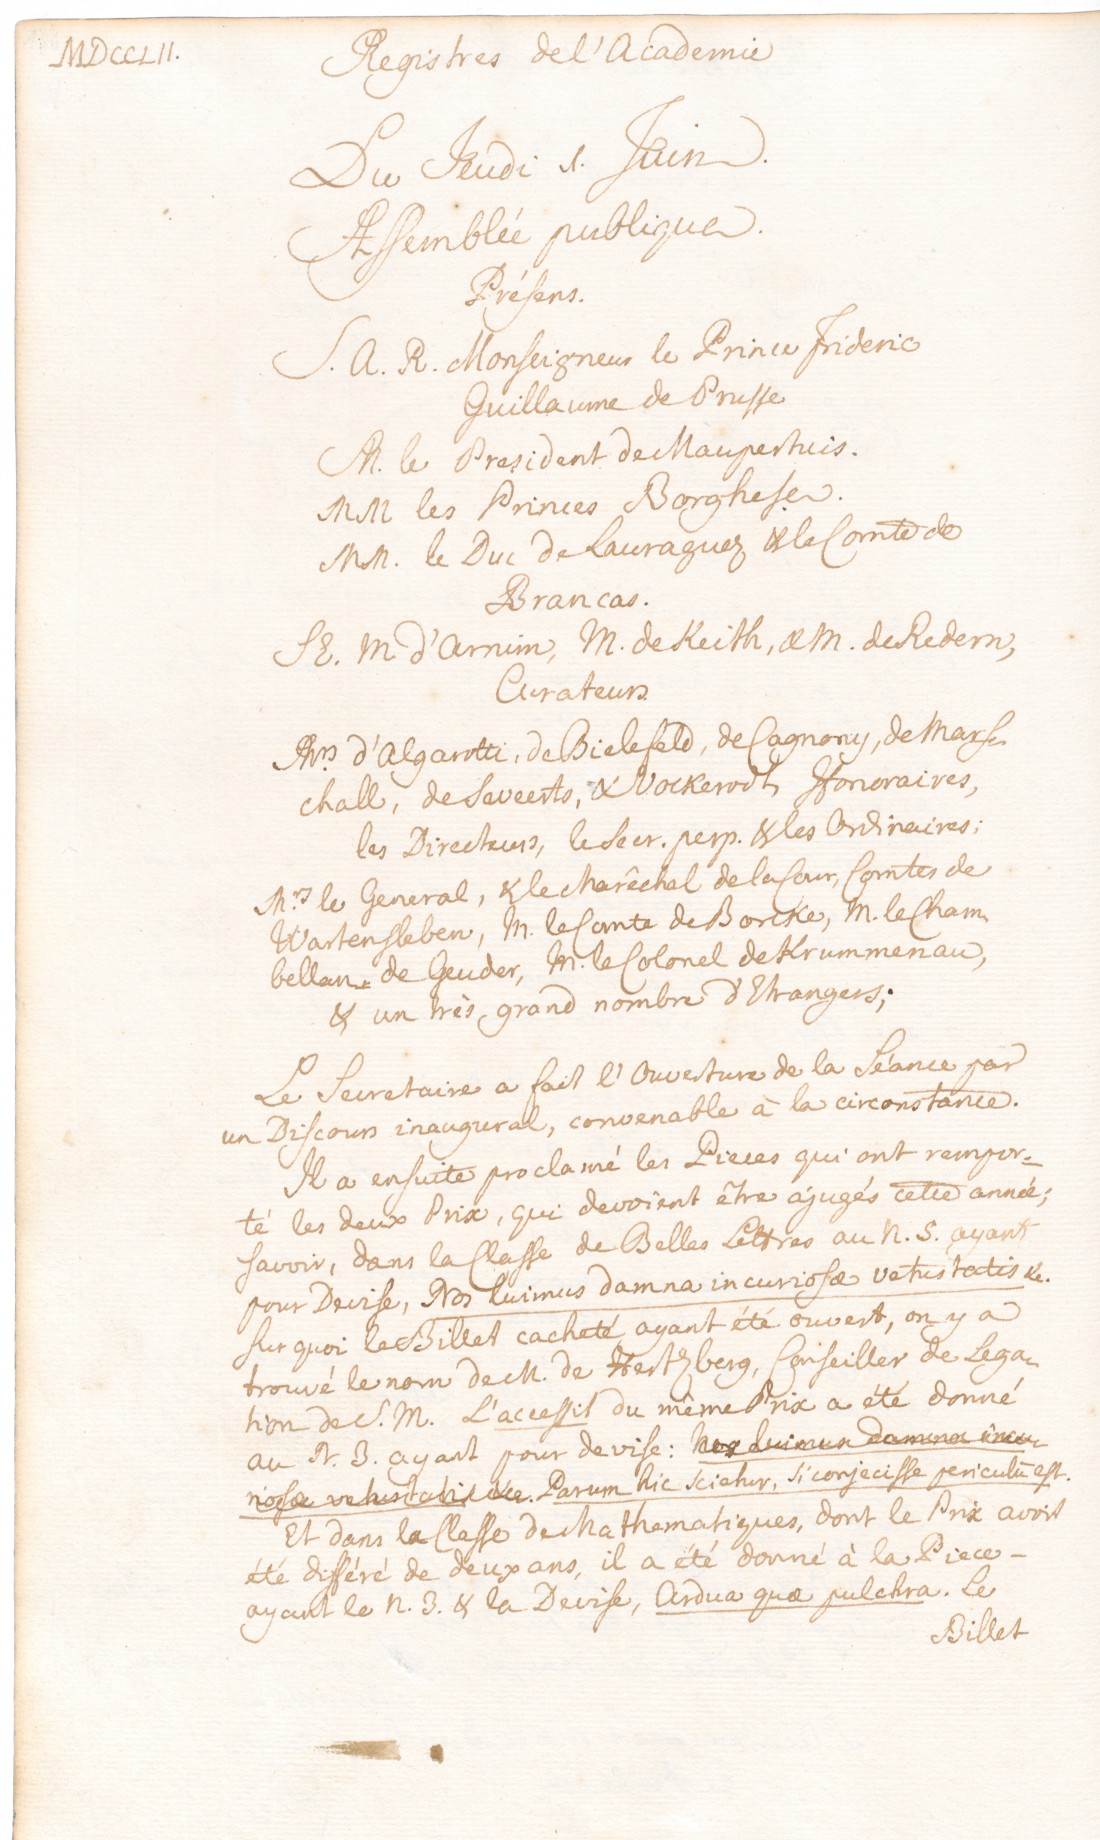 MDCCLII.
Registres de l'Academie
Du Jeudi 1. Juin.
Assemblée publique.
Présens.
S. A. R. Monseigneur le Prince Frideric
Guillaume de Prusse
M. le President de Maupertuis.
MM les Princes Borghese.
MM. le Duc de Lauraguez & le Comte de
Brancas.
S E. M d'Arnim, M. de Keith, & M. de Redern,
Curateurs
Mrs d'Algarotti, de Bielefeld, de Cagnony, de Mars-
chall, de Sweerts, & Vockerodt, Honoraires,
les Directeurs, le Secr. perp. & les Ordinaires;
Mrs le General, & le Marêchal de la Cour, Comtes de
Wartensleben, M. le Comte de Borcke, M. le Cham
bellan de Geuder, M. le Colonel de Krummenau,
& un très grand nombre d'Etrangers;
Le Secretaire a fait l'Ouverture de la Séance par
un Discours inaugural, convenable à la circonstance.
Il a ensuite proclamé les Pieces qui ont rempor-
té les deux Prix, qui devoient être ajugés cette année;
savoir, dans la Classe de Belles Lettres au N. 5. ayant
pour Devise, Nos luimus damna incuriosæ vetustatis &c.
sur quoi le Billet cacheté ayant été ouvert, on y a
trouvé le nom de M. de Hertzberg, Conseiller de Lega-
tion de S. M. L'accessit du même Prix a été donné
au N. 3. ayant pour devise: Nos luimus damna incu-
riosæ vetustatis &c. Parum hic scietur, si conjecisse periculū est.
Et dans la Classe de Mathematiques, dont le Prix avoit
été différé de deux ans, il a été donné à la Piece -
ayant le N. 3. & la Devise, Ardua quæ pulchra. Le
Billet